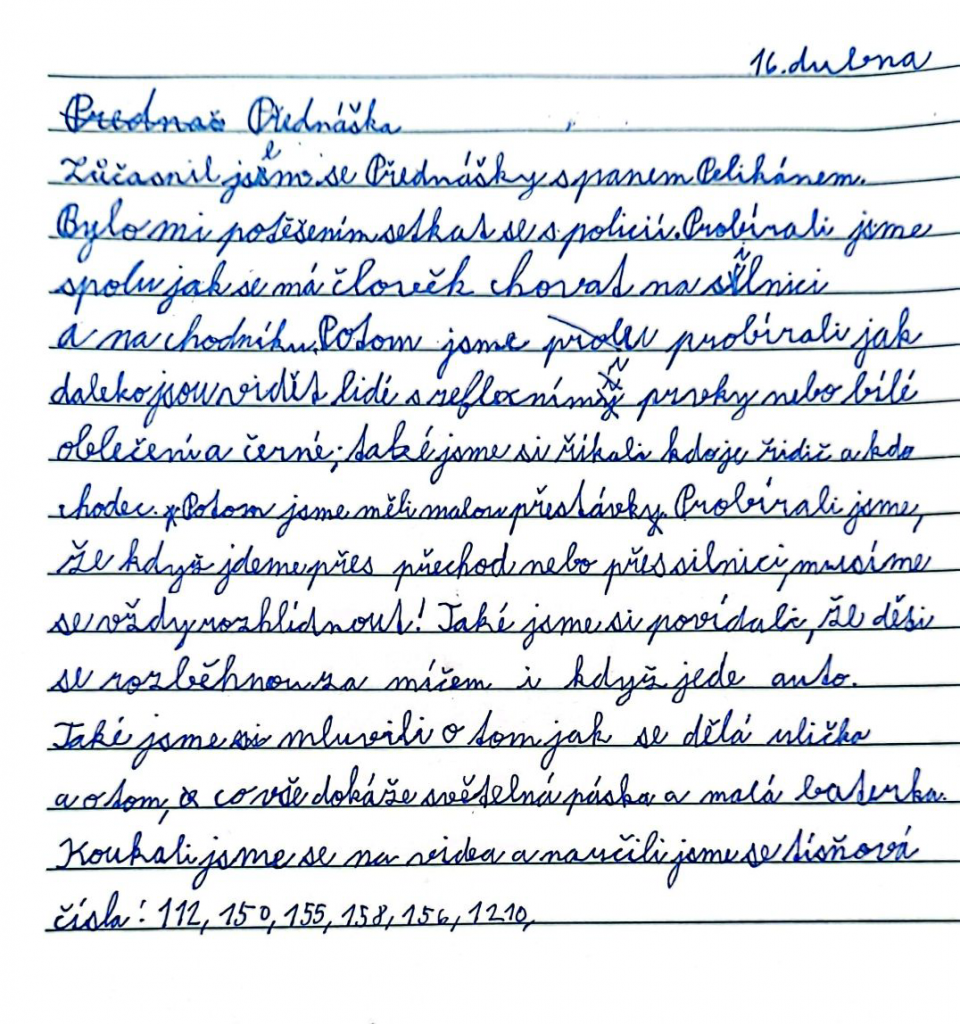 16. dubna
Prednaš Přednáška
Zůčasnil jsem se Přednášky s panem Pelikánem.
Bylo mi potěšením setkat se s policií. Probírali jsme
spolu jak se má člověk chovat na silnici
a na chodníku. Potom jsme probírali jak
daleko jsou vidět lidé s reflexními prvky nebo bílé
oblečení a černé; také jsme si říkali kdo je řidič a kdo
chodec. Potom jsme měli malou přestávky. Probírali jsme,
že když jdeme přes přechod nebo přes silnici, musíme
se vždy rozhlídnout! Také jsme si povídali, že děti
se rozběhnou za míčem i když jede auto.
Také jsme si mluvili o tom jak se dělá ulička
a o tom, co vše dokáže světelná páska a malá baterka.
Koukali jsme se na videa a naučili jsme se tísňová
čísla: 112, 150, 155, 158, 156, 1210,